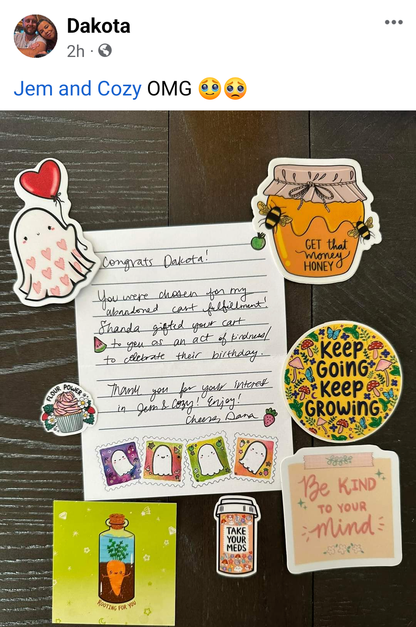 Dakota
2h
Jem and Cozy OMG 🥹😢
GET that
money
HONEY
Congrats Dakota!
You were chosen for my
abandoned cart fulfillment!
Shanda gifted your cart
to you as an act of kindness/
to celebrate their birthday.
Thank you for your interest
in Jem & Cozy! Enjoy!
Cheers, Dana
KEEP
GOING
KEEP
GROWING
FLOUR POWER
Be KIND
TO YOUR
Mind
TAKE
YOUR
MEDS
ROOTING FOR YOU